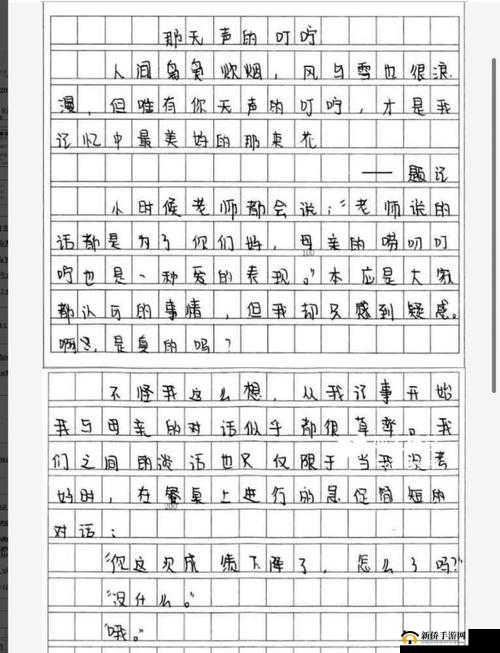 那无声的叮咛
人间袅袅炊烟，风与雪也很浪
漫，但唯有你无声的叮咛，才是我
记忆中最美好的那束花
——题记
小时候老师都会说：“老师说的
话都是为了你们好，母亲的唠叨叮
咛也是一种爱的表现。”本应是大家
都认可的事情，但我却只感到疑惑。
啊？是真的吗？
不怪我这么想，从我记事开始
我与母亲的对话似乎都很草率。我
们之间的谈话也只仅限于当我没考
好时，在餐桌上进行的急促简短的
对话：
“你这次成绩下降了，怎么了吗？”
“没什么。”
“哦。”
新侨手游网